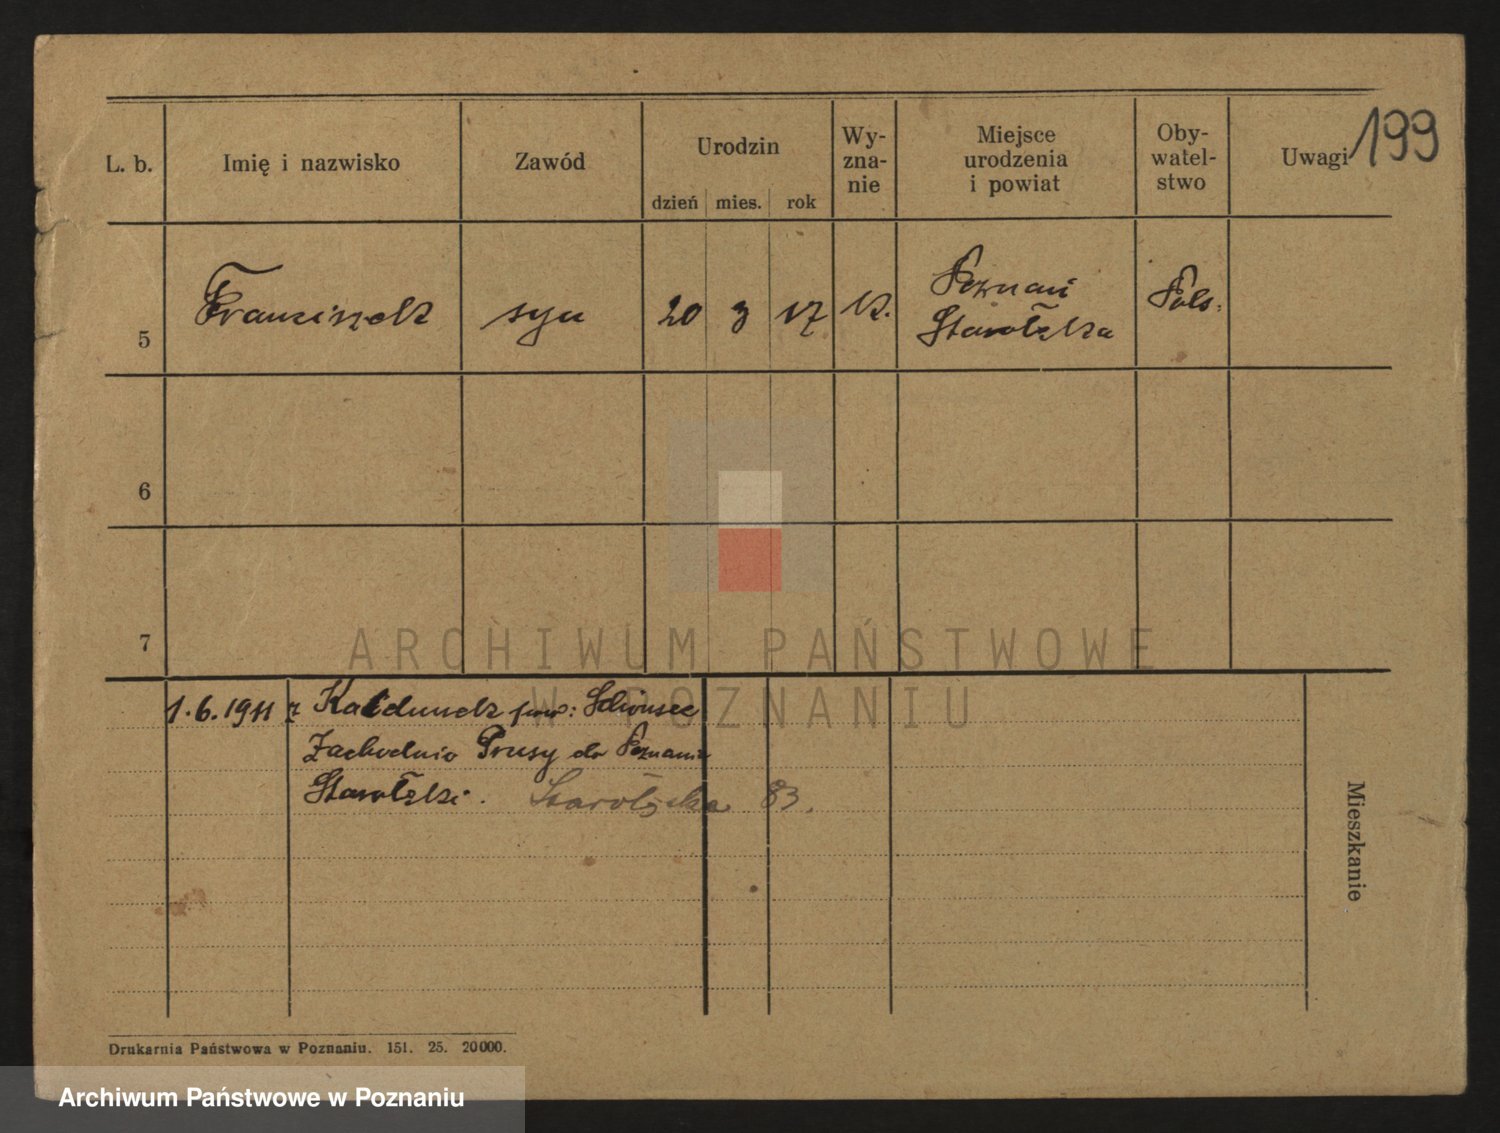 199
L. b.
Imię i nazwisko
Zawód
Urodzin
dzień mies. rok
Wy-
zna-
nie
Miejsce
urodzenia
i powiat
Oby-
watel-
stwo
Uwagi
5 Franciszek syn 20 3 17 k. Poznań Pols.
Starołęka
6
7
1.6.1911 z Kałdunek pow:
Zachodnie Prusy do Poznania
Starołęki. Starołęcka 83.
Mieszkanie
Drukarnia Państwowa w Poznaniu. 151. 25. 20000.
ARCHIWUM PAŃSTWOWE
W POZNANIU
Archiwum Państwowe w Poznaniu